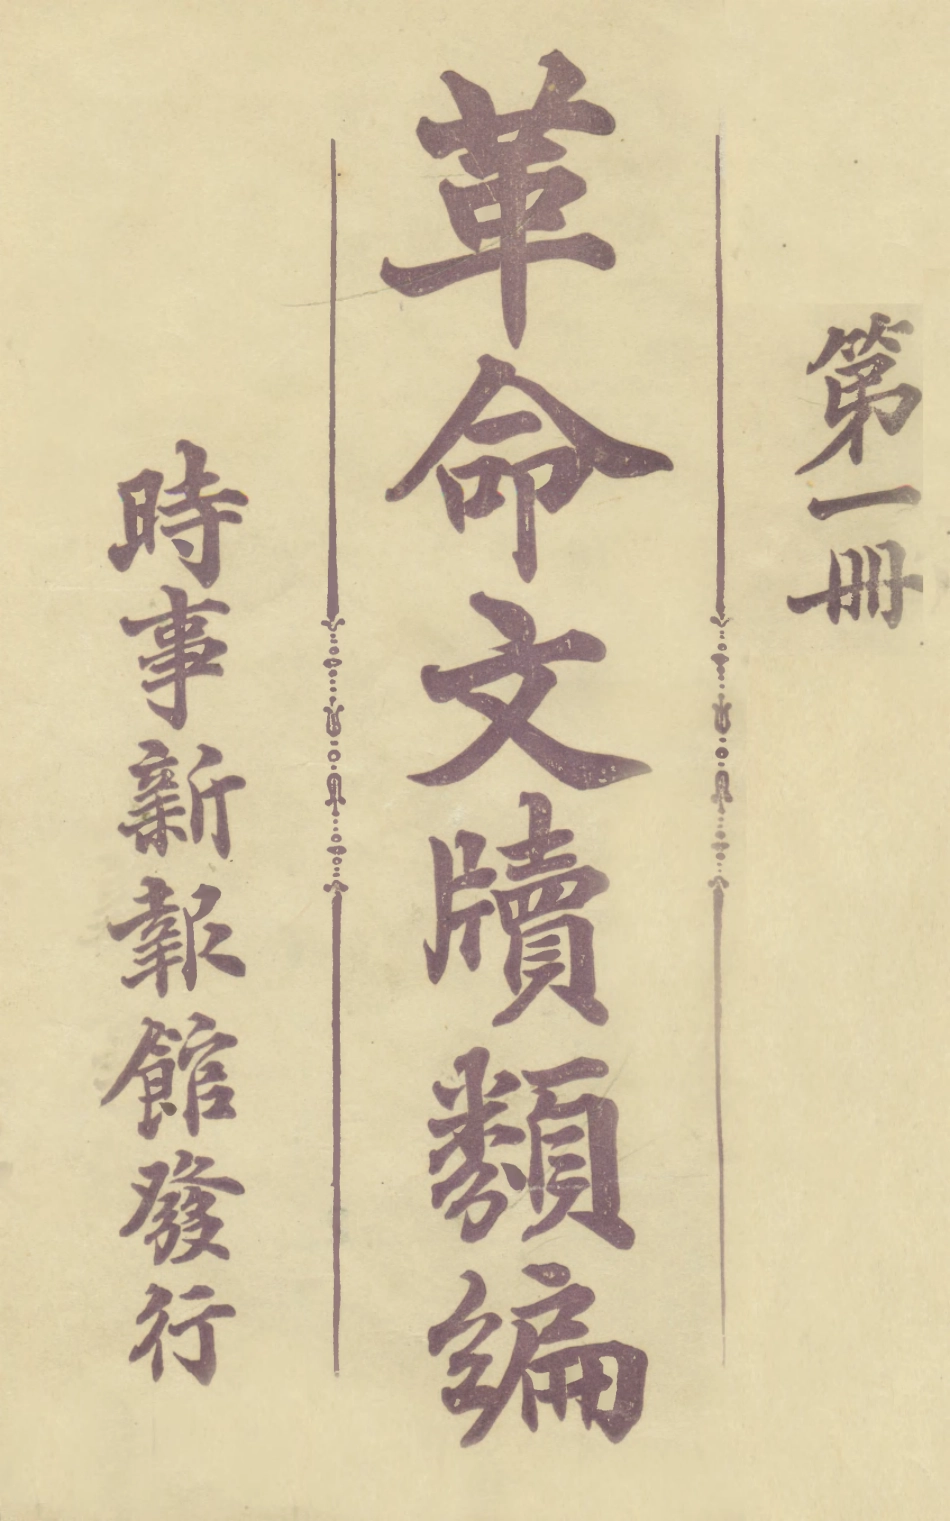 第一冊
革命文牘類編
時事新報館發行